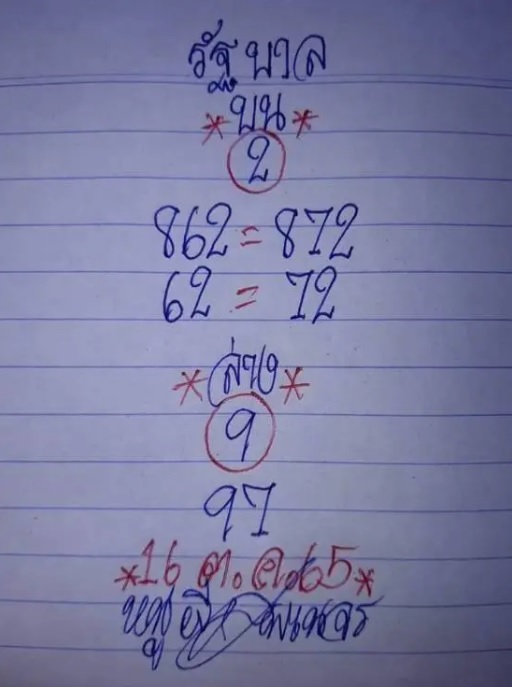 รัฐบาล
*บน*
2
862 = 872
62 = 72
*ล่าง*
9
97
*16 ต.ค.65*
หนู